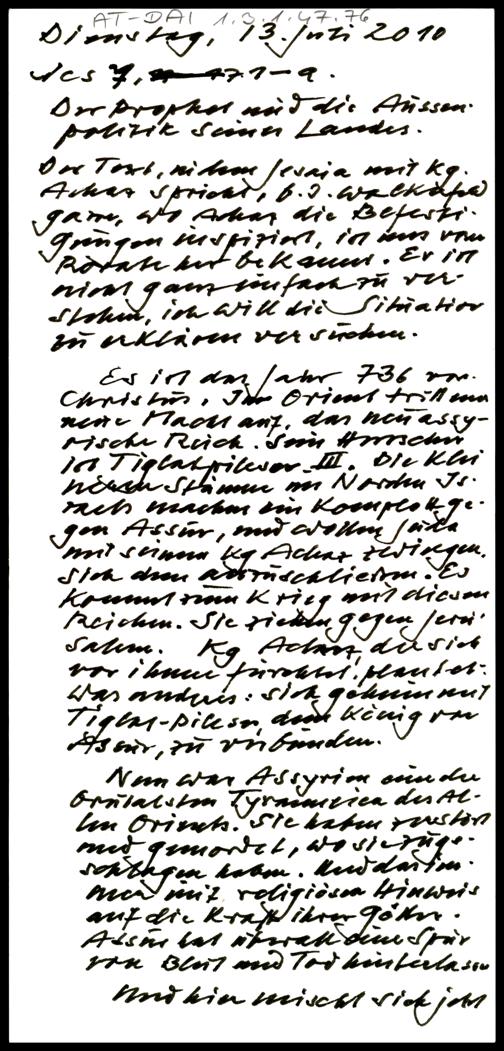 AT-DAI 1.3.1.47.76
Dienstag, 13. Juli 2010
Jes 7, 1-9.
Der Prophet und die Aussen-
politik seines Landes.
Der Text, in dem Jesaja mit Kg.
Achaz spricht, b. d. Walkerfeld
gasse, wo Achaz die Befesti-
gungen inspiziert, ist uns vom
Rorate her bekannt. Es ist
nicht ganz einfach zu ver-
stehen, ich will die Situation
zu erklären versuchen.
Es ist das Jahr 736 vor
Christus. Im Orient tritt eine
neue Macht auf, das neuassy-
rische Reich. Sein Herrscher
ist Tiglatpileser III. Die klei
neren Stämme im Norden Is-
raels machen ein Komplott ge-
gen Assur, und wollen Juda
mit seinem Kg Achaz zwingen,
sich dem anzuschliessen. Es
kommt zum Krieg mit diesen
Reichen. Sie ziehen gegen Jeru
salem. Kg Achaz, der sich
vor ihnen fürchtet, plant et-
was anderes: sich geheim mit
Tiglat-Pileser, dem König von
Assur, zu verbünden.
Nun war Assyrien eine der
brutalsten Tyranneien des Al-
ten Orients. Sie haben zerstört
und gemordet, wo sie zuge-
schlagen haben. Und das im-
mer mit religiösem Hinweis
auf die Kraft ihrer Götter.
Assur hat überall eine Spur
von Blut und Tod hinterlassen
Und hier mischt sich jetzt